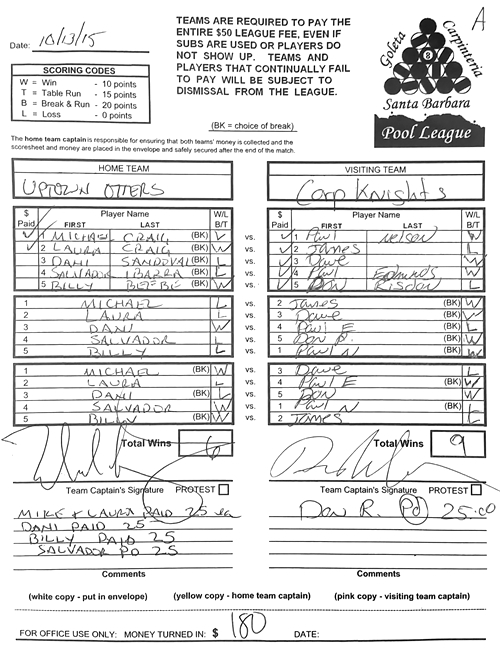 A
Date: 10/13/15
TEAMS ARE REQUIRED TO PAY THE
ENTIRE $50 LEAGUE FEE, EVEN IF
SUBS ARE USED OR PLAYERS DO
NOT SHOW UP. TEAMS AND
PLAYERS THAT CONTINUALLY FAIL
TO PAY WILL BE SUBJECT TO
DISMISSAL FROM THE LEAGUE.
SCORING CODES
W = Win - 10 points
T = Table Run - 15 points
B = Break & Run - 20 points
L = Loss - 0 points
Goleta Carpinteria
8
Santa Barbara
Pool League
(BK = choice of break)
The home team captain is responsible for ensuring that both teams' money is collected and the
scoresheet and money are placed in the envelope and safely secured after the end of the match.
HOME TEAM VISITING TEAM
UPTOWN OTTERS Carp Knights
$ Paid Player Name FIRST LAST W/L B/T $ Paid Player Name FIRST LAST W/L B/T
1 MICHAEL CRAIG (BK) L vs. 1 Paul Nelson W
2 LAURA CRAIG (BK) W vs. 2 James L
3 DANI SANDOVAL (BK) L vs. 3 Dave W
4 SALVADOR IBARRA (BK) L vs. 4 Paul Edmunds W
5 BILLY (BK) W vs. 5 Don Risdon L
1 MICHAEL L vs. 2 James (BK) W
2 LAURA L vs. 3 Dave (BK)
3 DANI W vs. 4 Paul E (BK) L
4 SALVADOR L vs. 5 Don R. (BK) W
5 BILLY L vs. 1 Paul N (BK) W
1 MICHAEL (BK) W vs. 3 Dave L
2 LAURA L vs. 4 Paul E (BK) W
3 DANI (BK) L vs. 5 Don W
4 SALVADOR W vs. 1 Paul N (BK) L
5 BILLY (BK) W vs. 2 James L
Total Wins 6 Total Wins 9
Team Captain's Signature PROTEST Team Captain's Signature PROTEST
MIKE & LAURA PAID 25 ea Don R. Pd 25.00
DANI PAID 25
BILLY PAID 25
SALVADOR PD 25
Comments Comments
(white copy - put in envelope) (yellow copy - home team captain) (pink copy - visiting team captain)
FOR OFFICE USE ONLY: MONEY TURNED IN: $ 180 DATE: